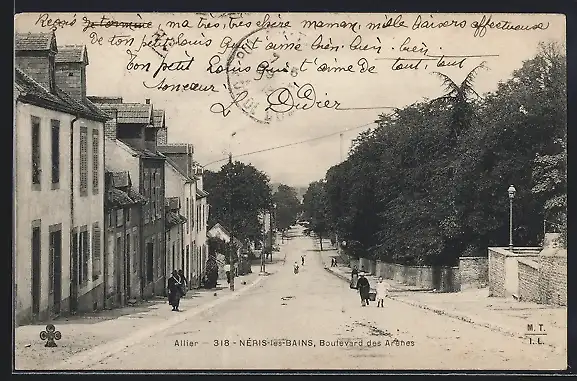 ma très, très chère maman, mille baisers affectueuse
de ton petit Louis qui t'aime bien, bien, bien
Ton petit Louis qui t'aime de tout tout
son cœur
Didier
Allier - 318 - NÉRIS-les-BAINS, Boulevard des Arènes
M T
I L